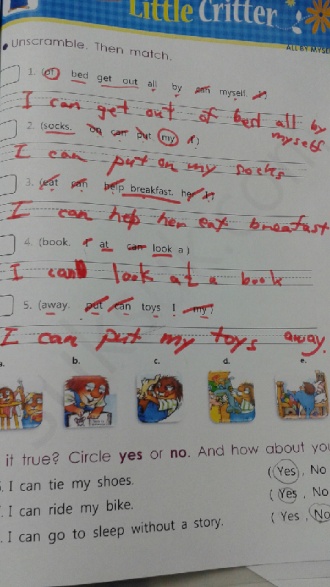 Little Critter
ALL BY MYSE
Unscramble. Then match.
1. (of bed get out all by can myself. I)
I can get out of bed all by
myself
2. (socks. on can put my I)
I can put on my socks
3. (eat can help breakfast. her I)
I can help her eat breafast
4. (book. I at can look a)
I can look at a book
5. (away. put can toys I my)
I can put my toys away.
a. b. c. d. e.
it true? Circle yes or no. And how about you
I can tie my shoes. (Yes, No
I can ride my bike. (Yes, No
I can go to sleep without a story. (Yes, No